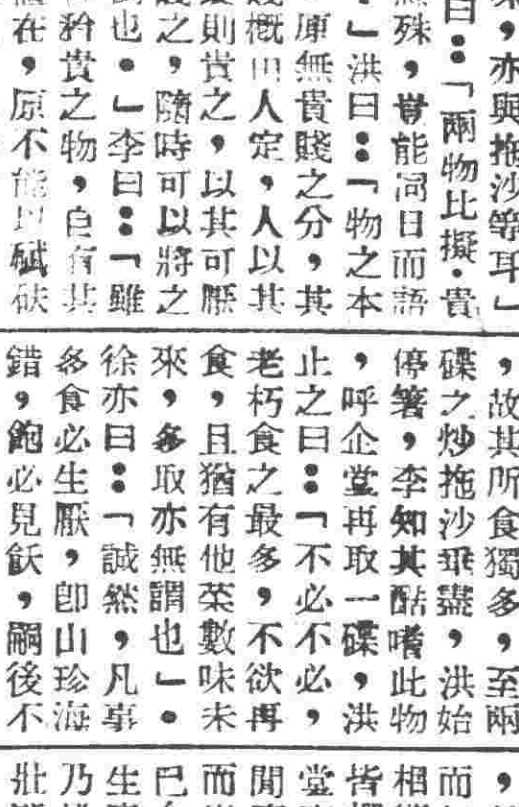 ，亦與拖沙等耳」
曰：「兩物比擬・貴
殊，豈能同日而語
」洪曰：「物之本
原無貴賤之分，其
概由人定，人以其
則貴之，以其可厭
之，隨時可以將之
也・」李曰：「雖
貴之物，自有其
在，原不能以碔砆
，故其所食獨多，至兩
碟之炒拖沙乖盡，洪始
停箸，李知其酷嗜此物
，呼企堂再取一碟，洪
止之曰：「不必不必，
老朽食之最多，不欲再
食，且猶有他菜數味未
來，多取亦無謂也」・
徐亦曰：「誠然，凡事
多食必生厭，卽山珍海
錯，飽必見飫，嗣後不
，
而
相
皆
堂
聞
而
巳
生
乃
壯